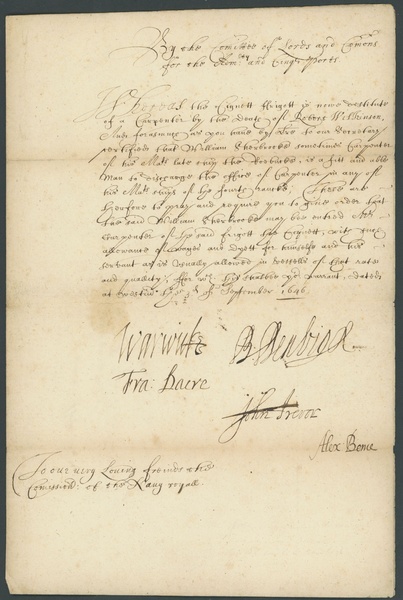 By the Comittee of Lords and Comons
for the Adm:ty and Cinque Ports
Whereas the Cignett ffrigott is now destitute
of a Carpenter by the death of Robert Wilkinson,
And forasmuch as you have by to our Secretary
certified that William Sherbrooke sometimes Carpenter
of his Ma:ts late ship the is a fitt and able
Man to discharge the office of Carpenter in any of
his Ma:ts ships of the fourth rancke; These are
therefore to pray and require you to give order that
the said William Sherbrooke may be entred As
Carpenter of the said frigott the Cignett, with such
allowance of wages and dyett for himselfe and his
servant as is usually allowed in vessells of that rate
and quality; ffor w:ch this shalbe yo:r warrant, dated
at westm:r of September 1646
Warwick
Fra: Dacre
John Trevor
Alex
To our very Loving friends the
Comission:rs of the Navy royall